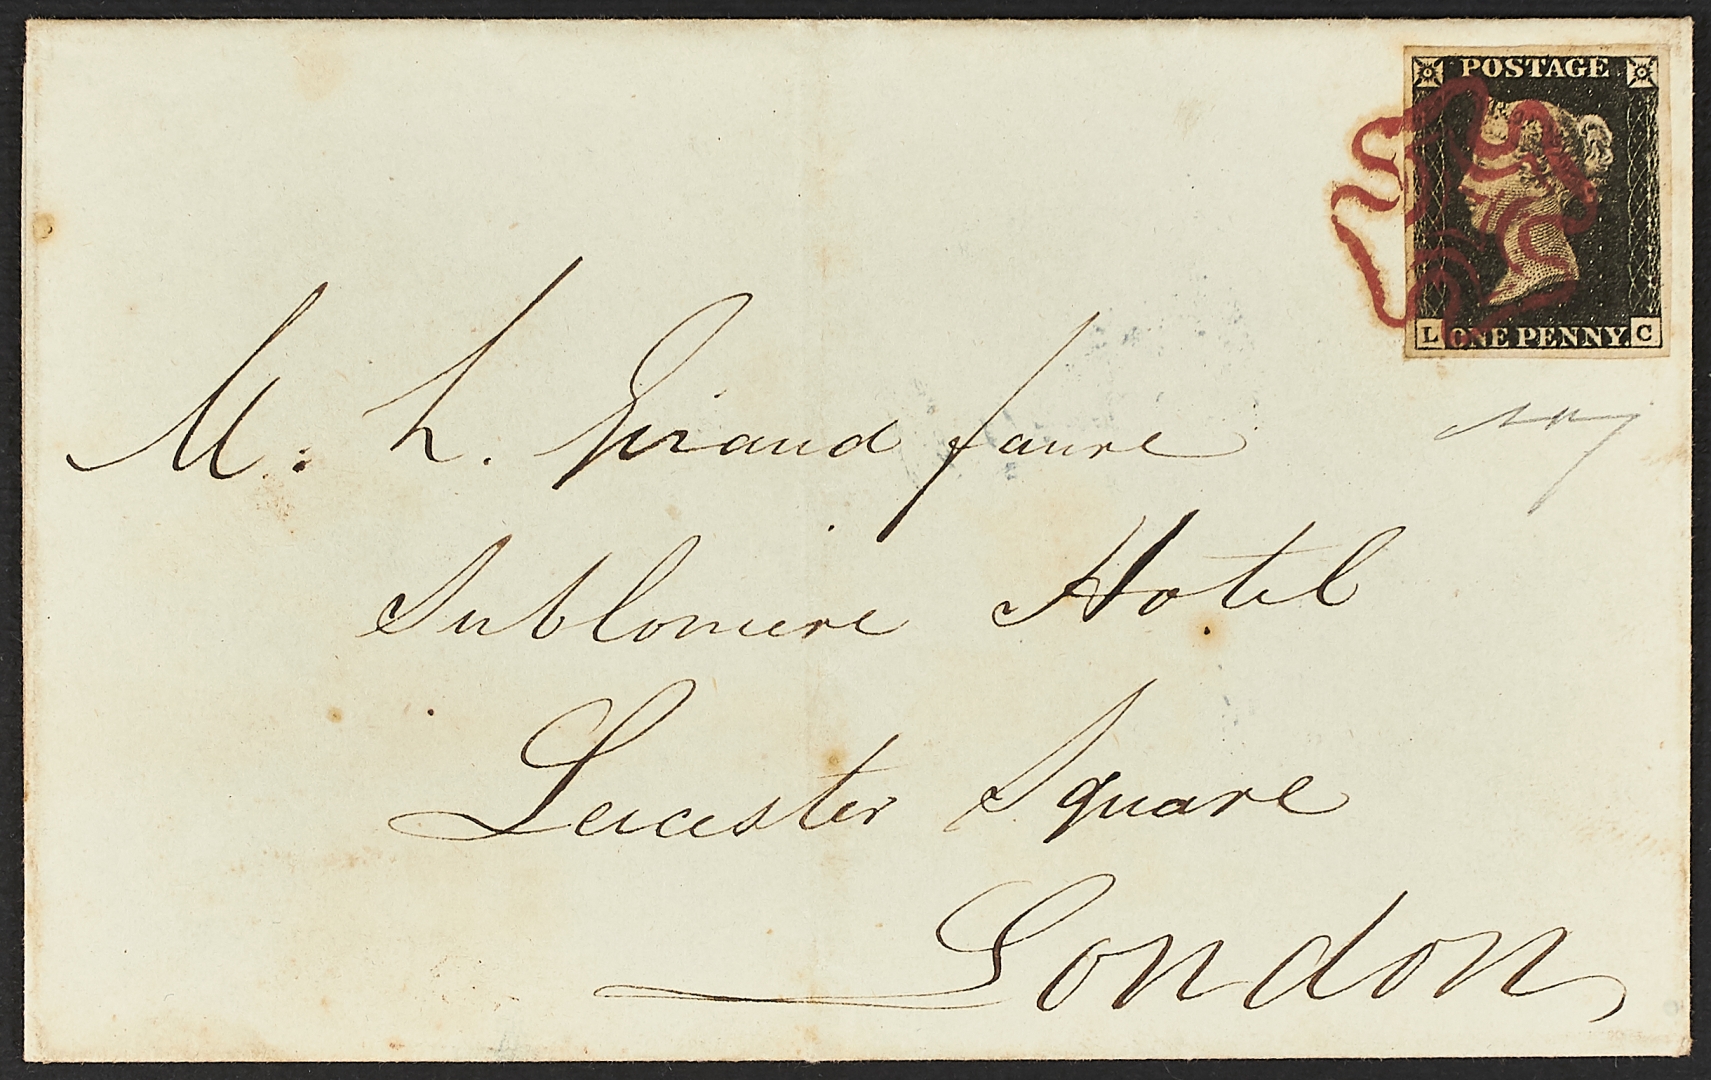 POSTAGE
L ONE PENNY. C
M. L. Giraud faure
Subloniere Hotel
Leicester Square
London